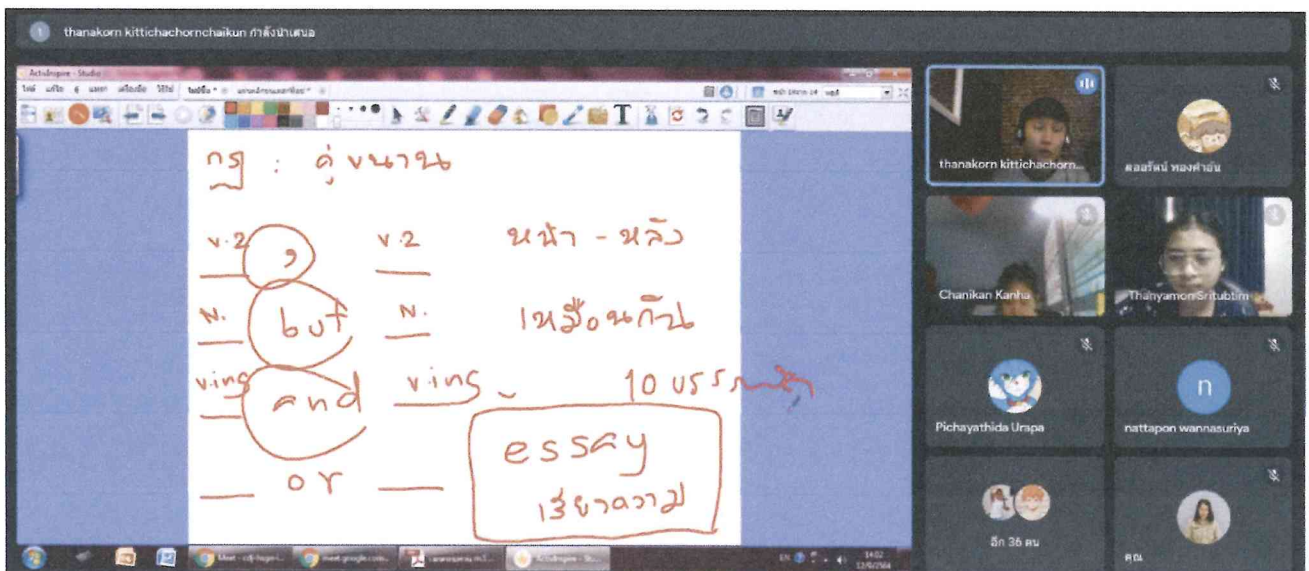 thanakorn kittichachornchaikun กำลังนำเสนอ
ActivInspire - Studio
กฎ : คู่ขนาน
v.2 , v.2 หน้า - หลัง
N. but N. เหมือนกัน
v.ing and v.ing 10 บรรทัด
or
essay
เรียงความ
thanakorn kittichachorn...
Chanikan Kanha
Thanyamon Sritubtim
Pichayathida Urapa
nattapon wannasuriya
อีก 36 คน
คุณ
EN
14:02